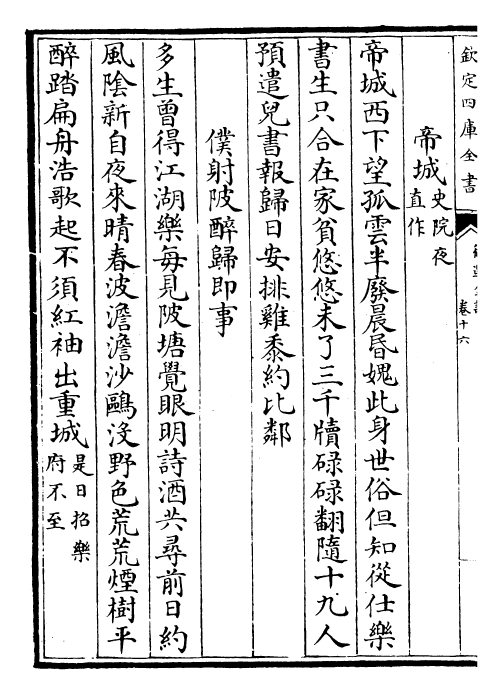 欽定四庫全書
卷十六
帝城史院夜直作
帝城西下望孤雲半廢晨昬媿此身世俗但知從仕樂
書生只合在家貧悠悠未了三千牘碌碌翻隨十九人
預遣兒書報歸日安排雞黍約比鄰
僕射陂醉歸即事
多生曾得江湖樂每見陂塘覺眼明詩酒共尋前日約
風隂新自夜來晴春波澹澹沙鷗没野色荒荒煙樹平
醉踏扁舟浩歌起不須紅袖出重城是日招樂府不至